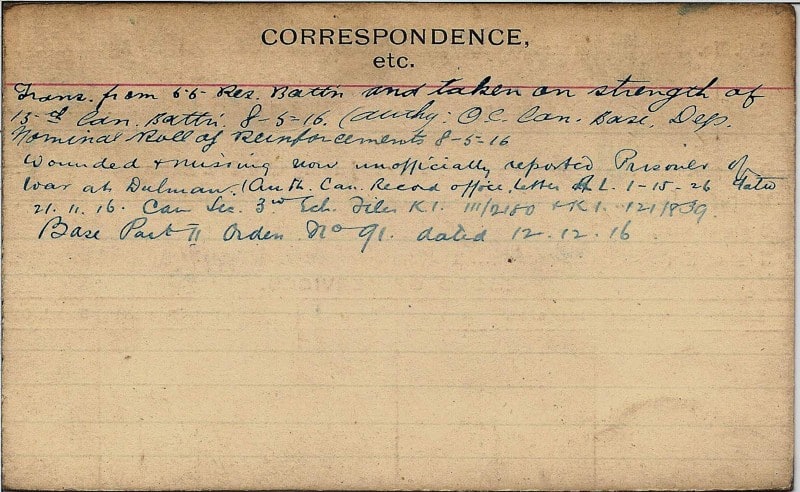 CORRESPONDENCE,
etc.
Trans. from 55 Res. Battn and taken on strength of
15th Can. Battn. 8-5-16. (Authy: O.C. Can. Base. Dep.
Nominal Roll of Reinforcements 8-5-16
Wounded & missing now unofficially reported Prisoner of
War at Dulman. (Auth. Can. Record office letter 1-15-26 dated
21.11.16. Can Sec. 3rd Ech. Files K1. 111/2180 & K1. 121/839.
Base Part II Orders No 91. dated 12.12.16